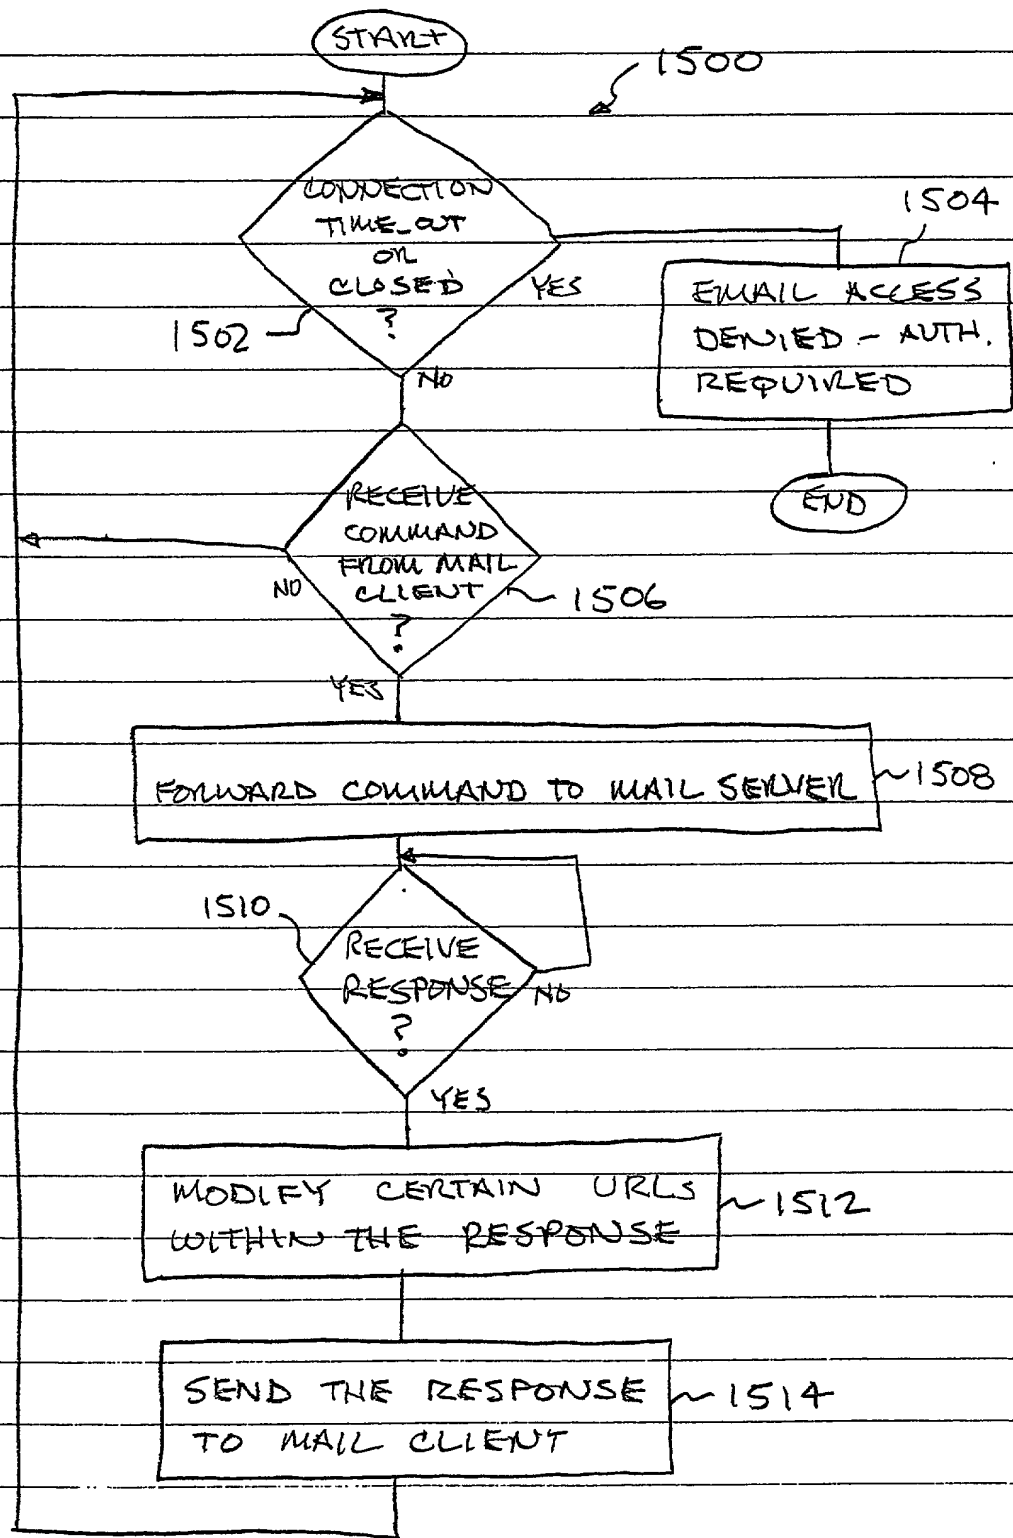 START
1500
CONNECTION
TIME_OUT
OR
CLOSED
?
YES
1502
NO
1504
EMAIL ACCESS
DENIED - AUTH.
REQUIRED
END
RECEIVE
COMMAND
FROM MAIL
CLIENT
?
NO
1506
YES
FORWARD COMMAND TO MAIL SERVER
1508
1510
RECEIVE
RESPONSE
?
NO
YES
MODIFY CERTAIN URLs
WITHIN THE RESPONSE
1512
SEND THE RESPONSE
TO MAIL CLIENT
1514